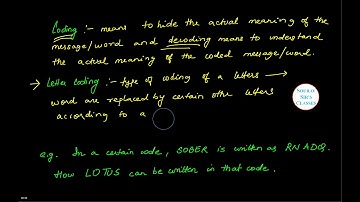 Coding :- means to hide the actual meaning of the
message/word and decoding means to understand
the actual meaning of the coded message/word.
→ Letter Coding :- type of coding of a letters →
word are replaced by certain other letters
according to a
SOURAV
SIR'S
CLASSES
e.g. In a certain code, SOBER is written as RNADQ.
How LOTUS can be written in that code.